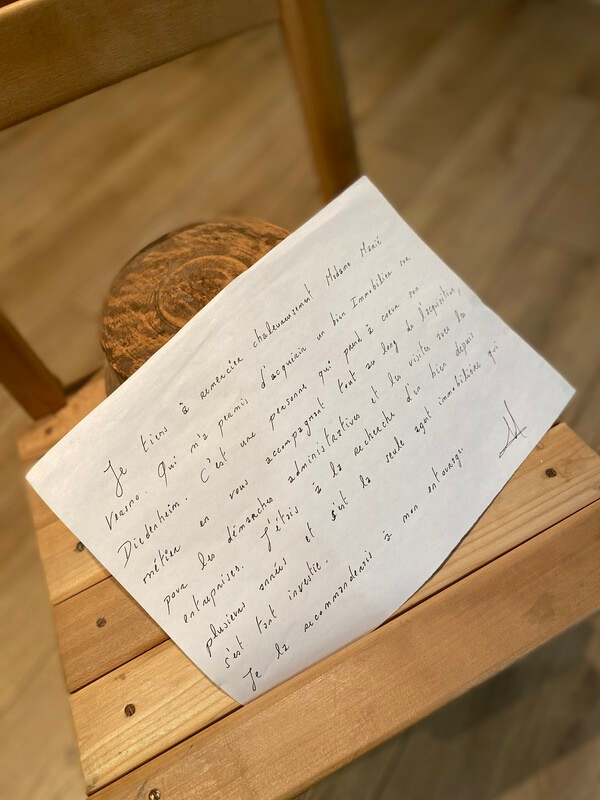 Je tiens à remercier chaleureusement Madame Marie
Verno. Qui m'a permis d'acquérir un bien Immobilier sur
Diedenheim. C'est une personne qui prend à coeur son
métier en vous accompagnant tout au long de l'acquisition,
pour les démarches administratives et les visites avec les
entreprises. J'étais à la recherche d'un bien depuis
plusieurs années et s'est la seule agent immobilière qui
s'est tant investie.
Je la recommanderais à mon entourage